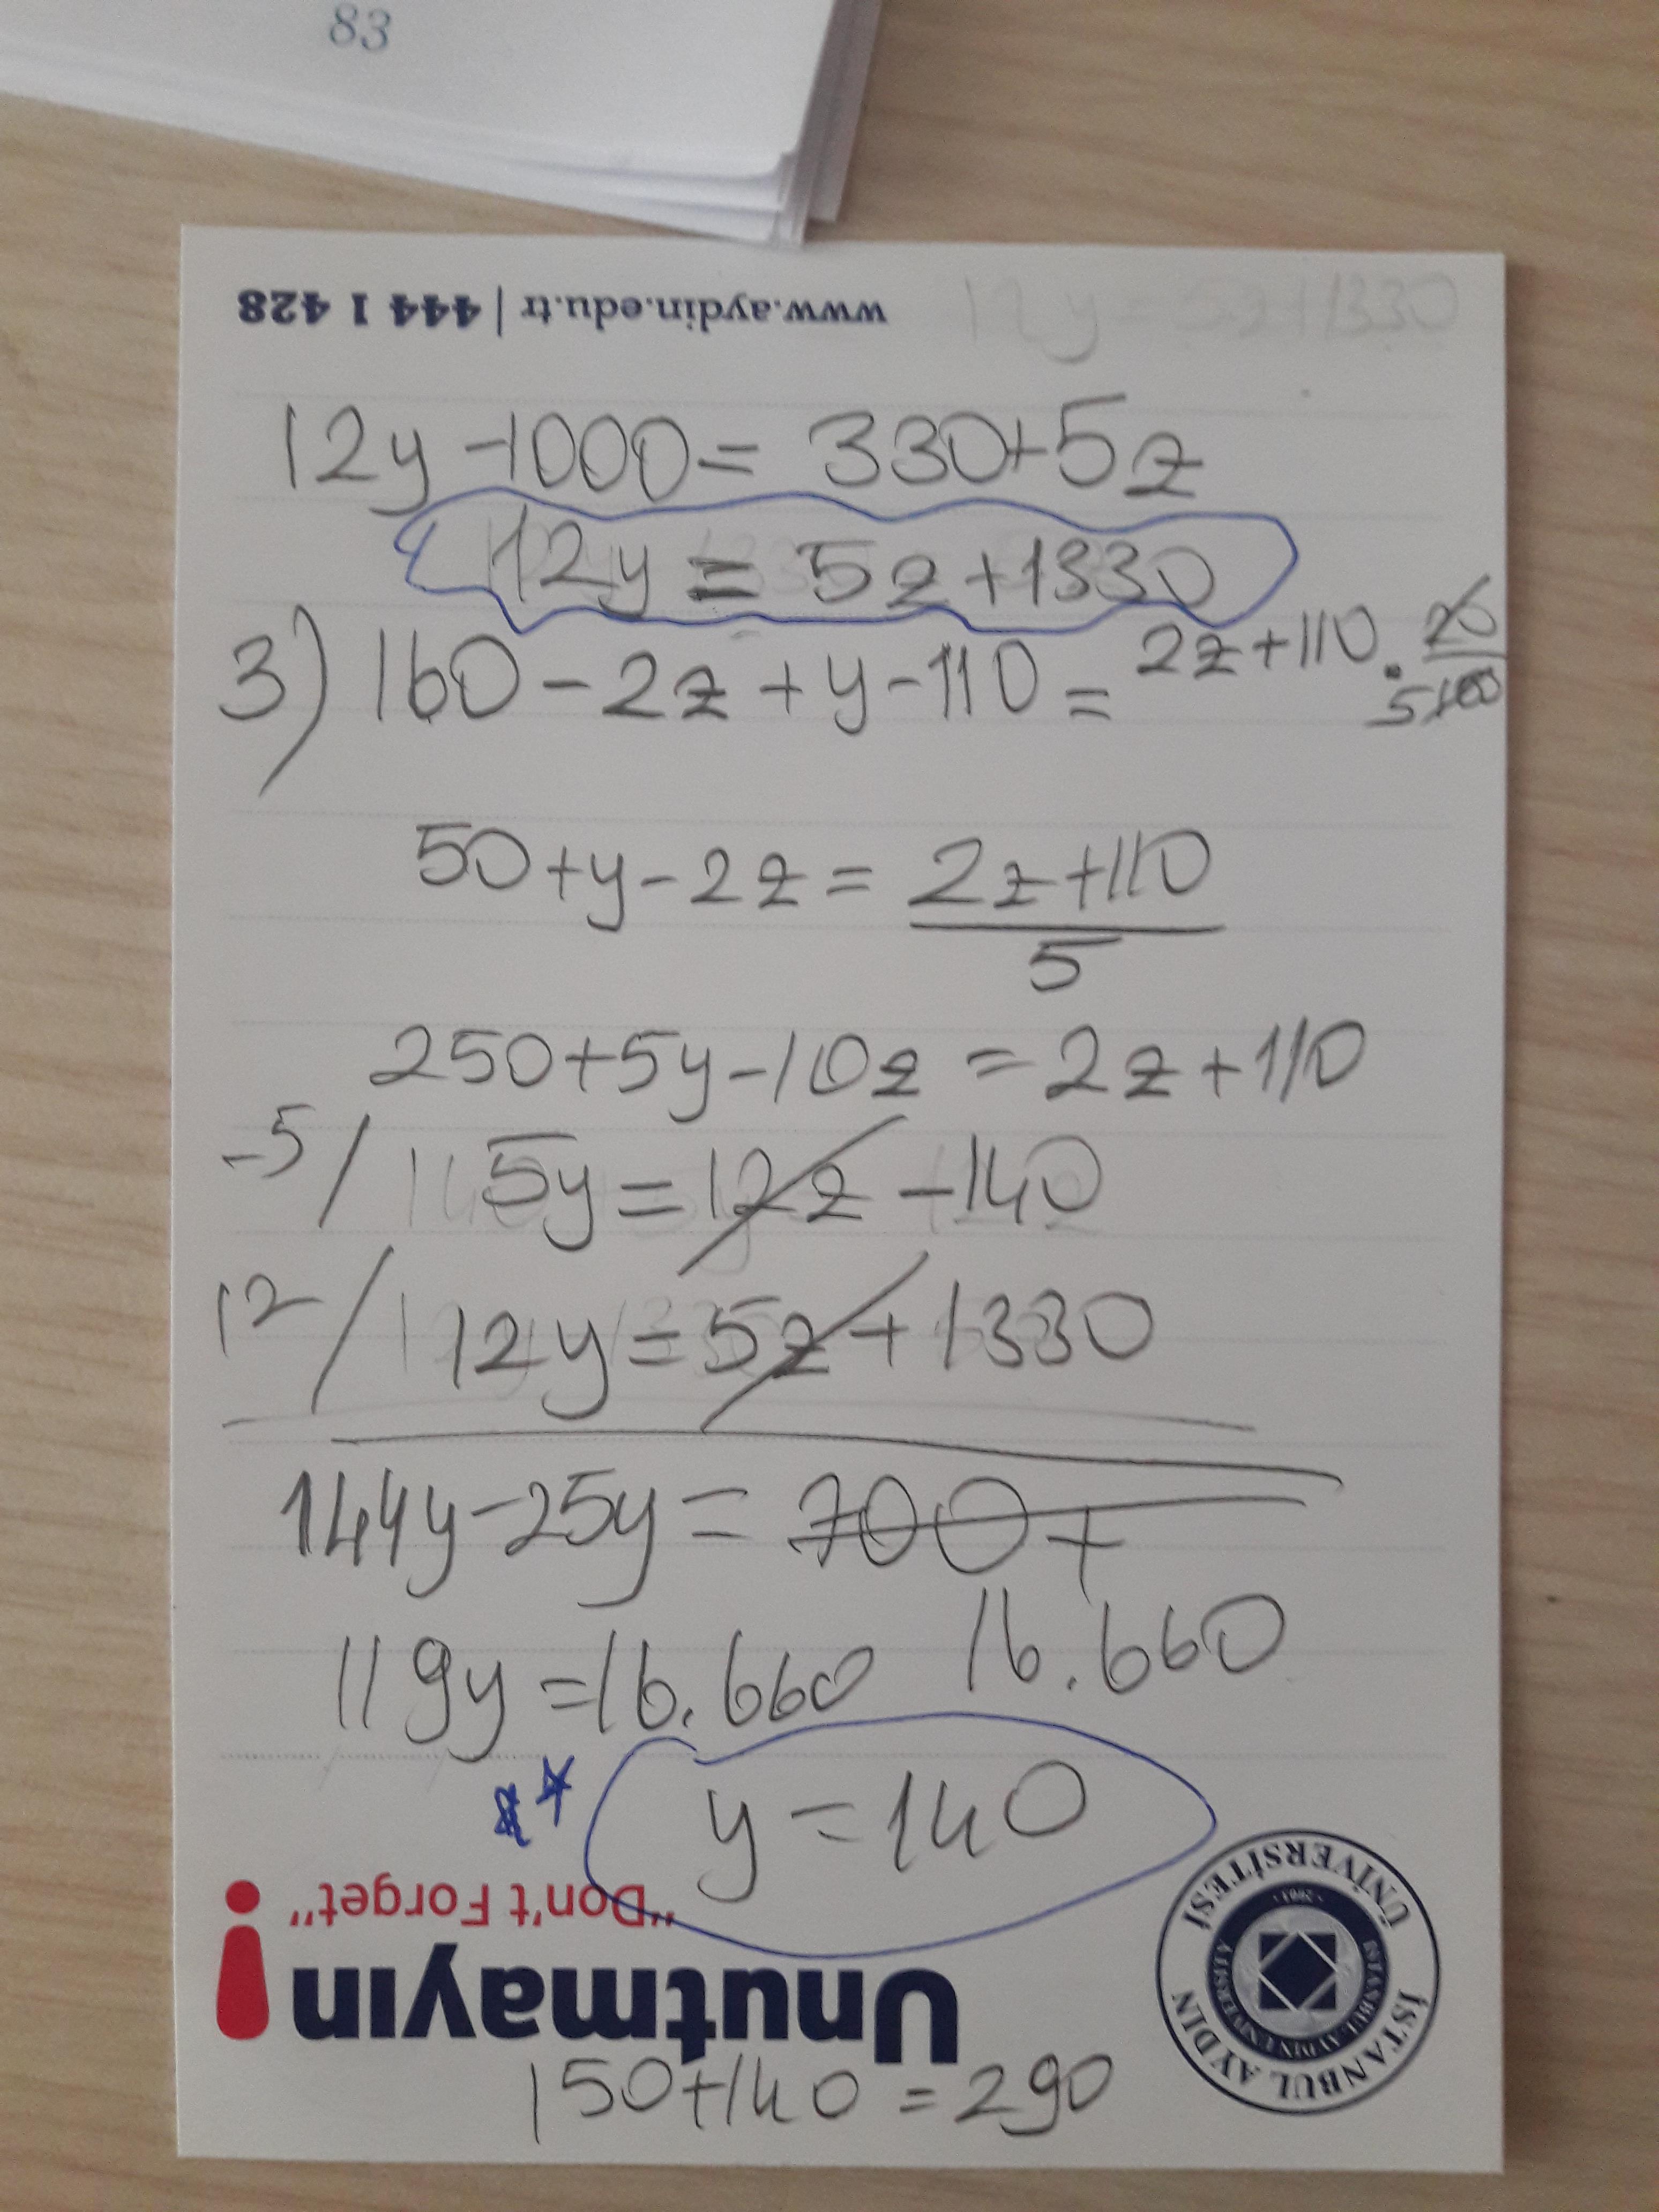 83
www.aydin.edu.tr | 444 1 428
12y = 5z+1330
12y-1000= 330+5z
12y = 5z+1330
3) 160-2z+y-110= 2z+110 . 20/5100
50+y-2z= 2z+110/5
250+5y-10z = 2z+110
-5/ 5y=12z-140
12/ 12y=5z+1330
144y-25y= 700+
16.660
119y=16.660
y=140
"Don't Forget"
Unutmayın!
İSTANBUL AYDIN ÜNİVERSİTESİ
ISTANBUL AYDIN UNIVERSITY
150+140=290